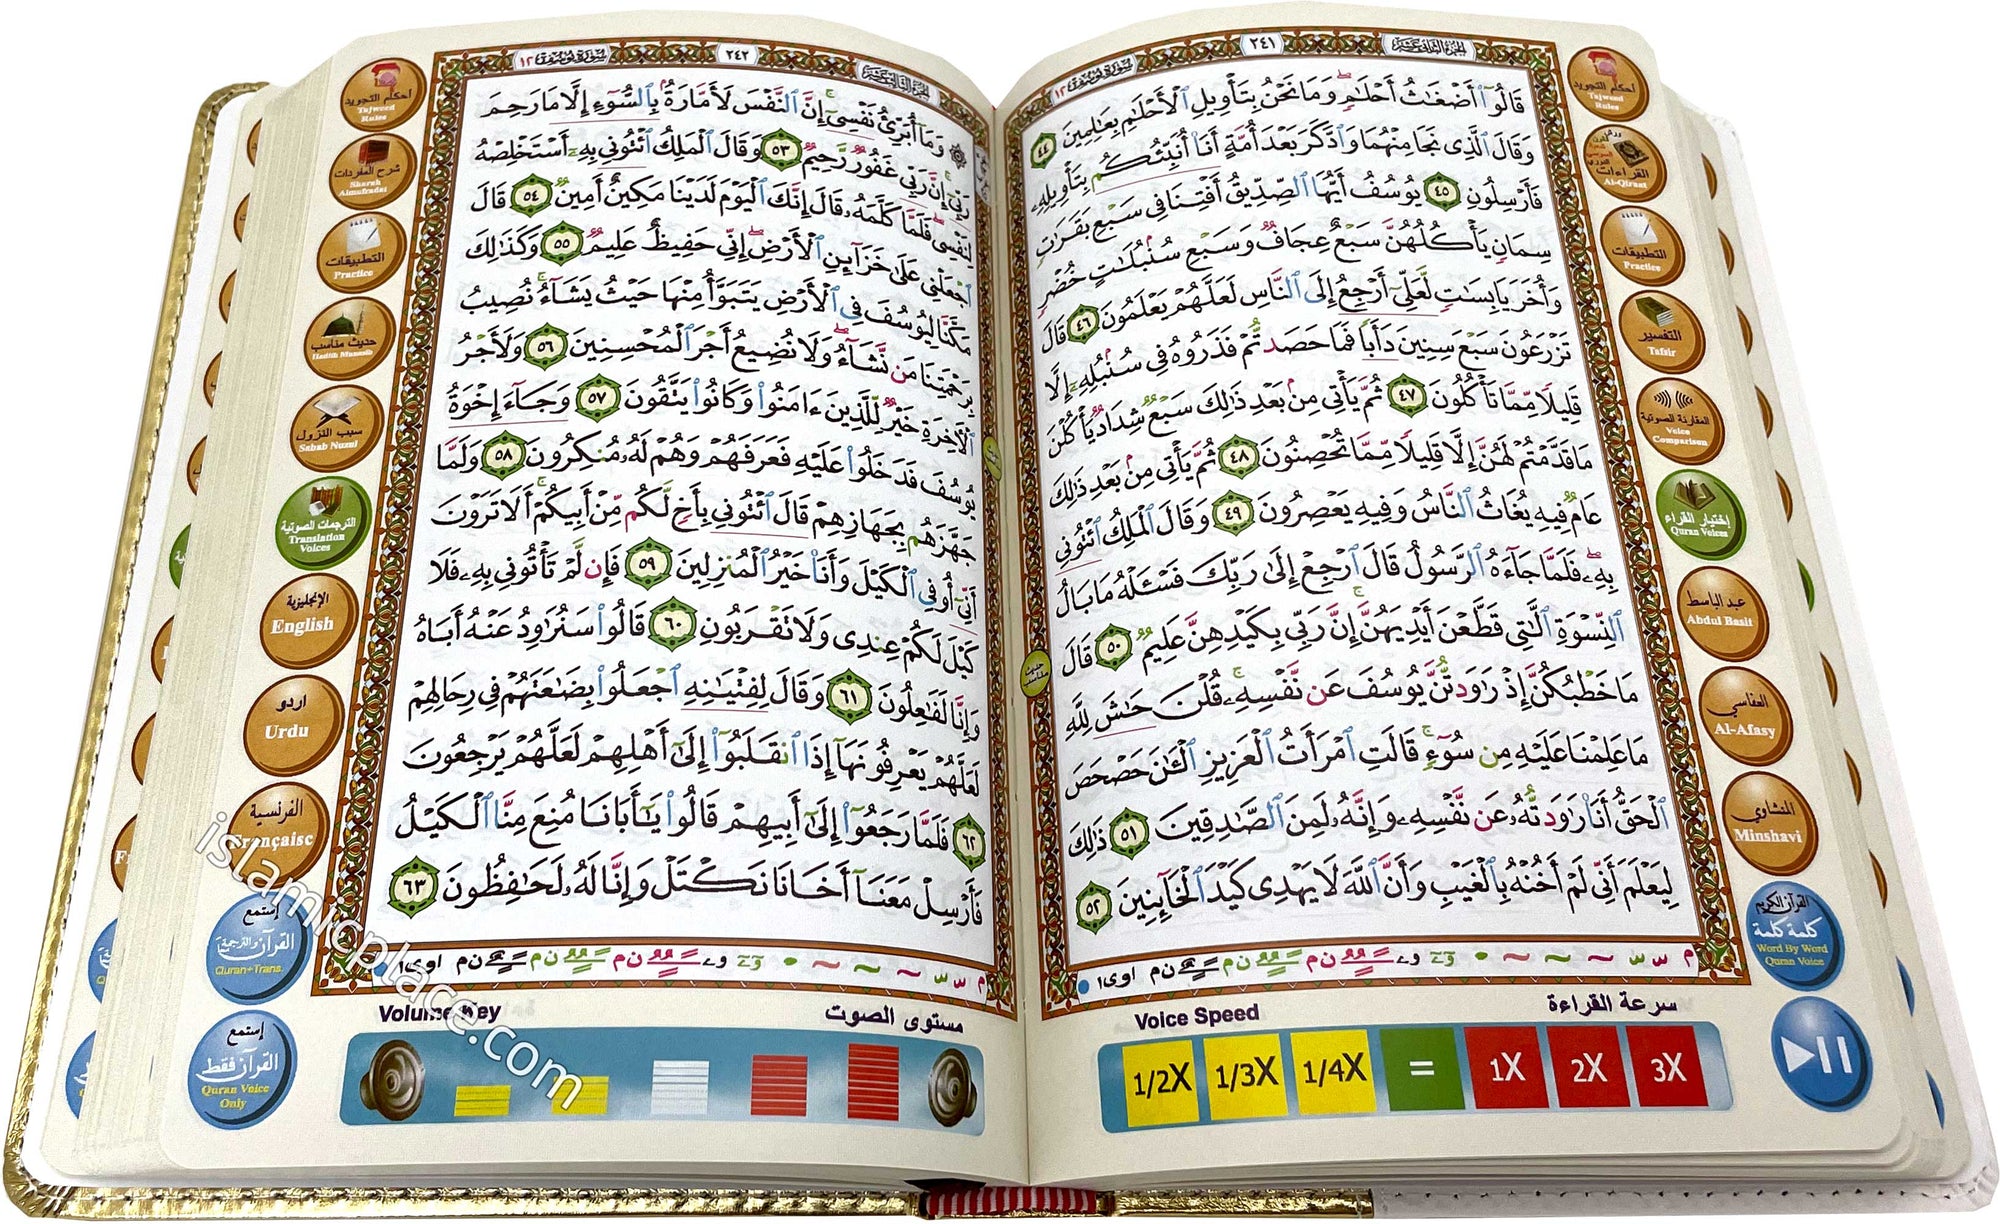 الجزء الثاني عشر
٢٤١
سورة يوسف ١٢
قَالُوٓا۟ أَضْغَٰثُ أَحْلَٰمٍ ۖ وَمَا نَحْنُ بِتَأْوِيلِ ٱلْأَحْلَٰمِ بِعَٰلِمِينَ ٤٤
وَقَالَ ٱلَّذِى نَجَا مِنْهُمَا وَٱدَّكَرَ بَعْدَ أُمَّةٍ أَنَا۠ أُنَبِّئُكُم بِتَأْوِيلِهِۦ
فَأَرْسِلُونِ ٤٥ يُوسُفُ أَيُّهَا ٱلصِّدِّيقُ أَفْتِنَا فِى سَبْعِ بَقَرَٰتٍ
سِمَانٍ يَأْكُلُهُنَّ سَبْعٌ عِجَافٌ وَسَبْعِ سُنۢبُلَٰتٍ خُضْرٍ
وَأُخَرَ يَابِسَٰتٍ لَّعَلِّىٓ أَرْجِعُ إِلَى ٱلنَّاسِ لَعَلَّهُمْ يَعْلَمُونَ ٤٦ قَالَ
تَزْرَعُونَ سَبْعَ سِنِينَ دَأَبًا فَمَا حَصَدتُّمْ فَذَرُوهُ فِى سُنۢبُلِهِۦٓ إِلَّا
قَلِيلًا مِّمَّا تَأْكُلُونَ ٤٧ ثُمَّ يَأْتِى مِنۢ بَعْدِ ذَٰلِكَ سَبْعٌ شِدَادٌ يَأْكُلْنَ
مَا قَدَّمْتُمْ لَهُنَّ إِلَّا قَلِيلًا مِّمَّا تُحْصِنُونَ ٤٨ ثُمَّ يَأْتِى مِنۢ بَعْدِ ذَٰلِكَ
عَامٌ فِيهِ يُغَاثُ ٱلنَّاسُ وَفِيهِ يَعْصِرُونَ ٤٩ وَقَالَ ٱلْمَلِكُ ٱئْتُونِى
بِهِۦ ۖ فَلَمَّا جَآءَهُ ٱلرَّسُولُ قَالَ ٱرْجِعْ إِلَىٰ رَبِّكَ فَسْـَٔلْهُ مَا بَالُ
ٱلنِّسْوَةِ ٱلَّٰتِى قَطَّعْنَ أَيْدِيَهُنَّ ۚ إِنَّ رَبِّى بِكَيْدِهِنَّ عَلِيمٌ ٥٠ قَالَ
مَا خَطْبُكُنَّ إِذْ رَٰوَدتُّنَّ يُوسُفَ عَن نَّفْسِهِۦ ۚ قُلْنَ حَٰشَ لِلَّهِ
مَا عَلِمْنَا عَلَيْهِ مِن سُوٓءٍ ۚ قَالَتِ ٱمْرَأَتُ ٱلْعَزِيزِ ٱلْـَٰٔنَ حَصْحَصَ
ٱلْحَقُّ أَنَا۠ رَٰوَدتُّهُۥ عَن نَّفْسِهِۦ وَإِنَّهُۥ لَمِنَ ٱلصَّٰدِقِينَ ٥١ ذَٰلِكَ
لِيَعْلَمَ أَنِّى لَمْ أَخُنْهُ بِٱلْغَيْبِ وَأَنَّ ٱللَّهَ لَا يَهْدِى كَيْدَ ٱلْخَآئِنِينَ ٥٢
أحكام التجويد
Tajweed
Rules
القراءات
Al-Qiraat
التطبيقات
Practice
التفسير
Tafsir
المقارنة الصوتية
Voice
Comparison
إختيار القراء
Quran Voices
عبد الباسط
Abdul Basit
العفاسي
Al-Afasy
المنشاوي
Minshavi
القرآن الكريم
كلمة كلمة
Word By Word
Quran Voice
حديث مناسب
Voice Speed
سرعة القراءة
1/2X 1/3X 1/4X = 1X 2X 3X
الجزء الثالث عشر
٢٤٢
سورة يوسف ١٢
وَمَآ أُبَرِّئُ نَفْسِىٓ ۚ إِنَّ ٱلنَّفْسَ لَأَمَّارَةٌۢ بِٱلسُّوٓءِ إِلَّا مَا رَحِمَ
رَبِّىٓ ۚ إِنَّ رَبِّى غَفُورٌ رَّحِيمٌ ٥٣ وَقَالَ ٱلْمَلِكُ ٱئْتُونِى بِهِۦٓ أَسْتَخْلِصْهُ
لِنَفْسِى ۖ فَلَمَّا كَلَّمَهُۥ قَالَ إِنَّكَ ٱلْيَوْمَ لَدَيْنَا مَكِينٌ أَمِينٌ ٥٤ قَالَ
ٱجْعَلْنِى عَلَىٰ خَزَآئِنِ ٱلْأَرْضِ ۖ إِنِّى حَفِيظٌ عَلِيمٌ ٥٥ وَكَذَٰلِكَ
مَكَّنَّا لِيُوسُفَ فِى ٱلْأَرْضِ يَتَبَوَّأُ مِنْهَا حَيْثُ يَشَآءُ ۚ نُصِيبُ
بِرَحْمَتِنَا مَن نَّشَآءُ ۖ وَلَا نُضِيعُ أَجْرَ ٱلْمُحْسِنِينَ ٥٦ وَلَأَجْرُ
ٱلْءَاخِرَةِ خَيْرٌ لِّلَّذِينَ ءَامَنُوا۟ وَكَانُوا۟ يَتَّقُونَ ٥٧ وَجَآءَ إِخْوَةُ
يُوسُفَ فَدَخَلُوا۟ عَلَيْهِ فَعَرَفَهُمْ وَهُمْ لَهُۥ مُنكِرُونَ ٥٨ وَلَمَّا
جَهَّزَهُم بِجَهَازِهِمْ قَالَ ٱئْتُونِى بِأَخٍ لَّكُم مِّنْ أَبِيكُمْ ۚ أَلَا تَرَوْنَ
أَنِّىٓ أُوفِى ٱلْكَيْلَ وَأَنَا۠ خَيْرُ ٱلْمُنزِلِينَ ٥٩ فَإِن لَّمْ تَأْتُونِى بِهِۦ فَلَا
كَيْلَ لَكُمْ عِندِى وَلَا تَقْرَبُونِ ٦٠ قَالُوا۟ سَنُرَٰوِدُ عَنْهُ أَبَاهُ
وَإِنَّا لَفَٰعِلُونَ ٦١ وَقَالَ لِفِتْيَٰنِهِ ٱجْعَلُوا۟ بِضَٰعَتَهُمْ فِى رِحَالِهِمْ
لَعَلَّهُمْ يَعْرِفُونَهَآ إِذَا ٱنقَلَبُوٓا۟ إِلَىٰٓ أَهْلِهِمْ لَعَلَّهُمْ يَرْجِعُونَ
٦٢ فَلَمَّا رَجَعُوٓا۟ إِلَىٰٓ أَبِيهِمْ قَالُوا۟ يَٰٓأَبَانَا مُنِعَ مِنَّا ٱلْكَيْلُ
فَأَرْسِلْ مَعَنَآ أَخَانَا نَكْتَلْ وَإِنَّا لَهُۥ لَحَٰفِظُونَ ٦٣
أحكام التجويد
Tajweed
Rules
شرح المفردات
Sharah
Almufradat
التطبيقات
Practice
حديث مناسب
Hadith Munasib
سبب النزول
Sabab Nuzul
الترجمات الصوتية
Translation
Voices
الإنجليزية
English
اردو
Urdu
الفرنسية
Française
إستمع
القرآن والترجمة
Quran+Trans.
إستمع
القرآن فقط
Quran Voice
Only
Volume Key
مستوى الصوت
islamicplace.com